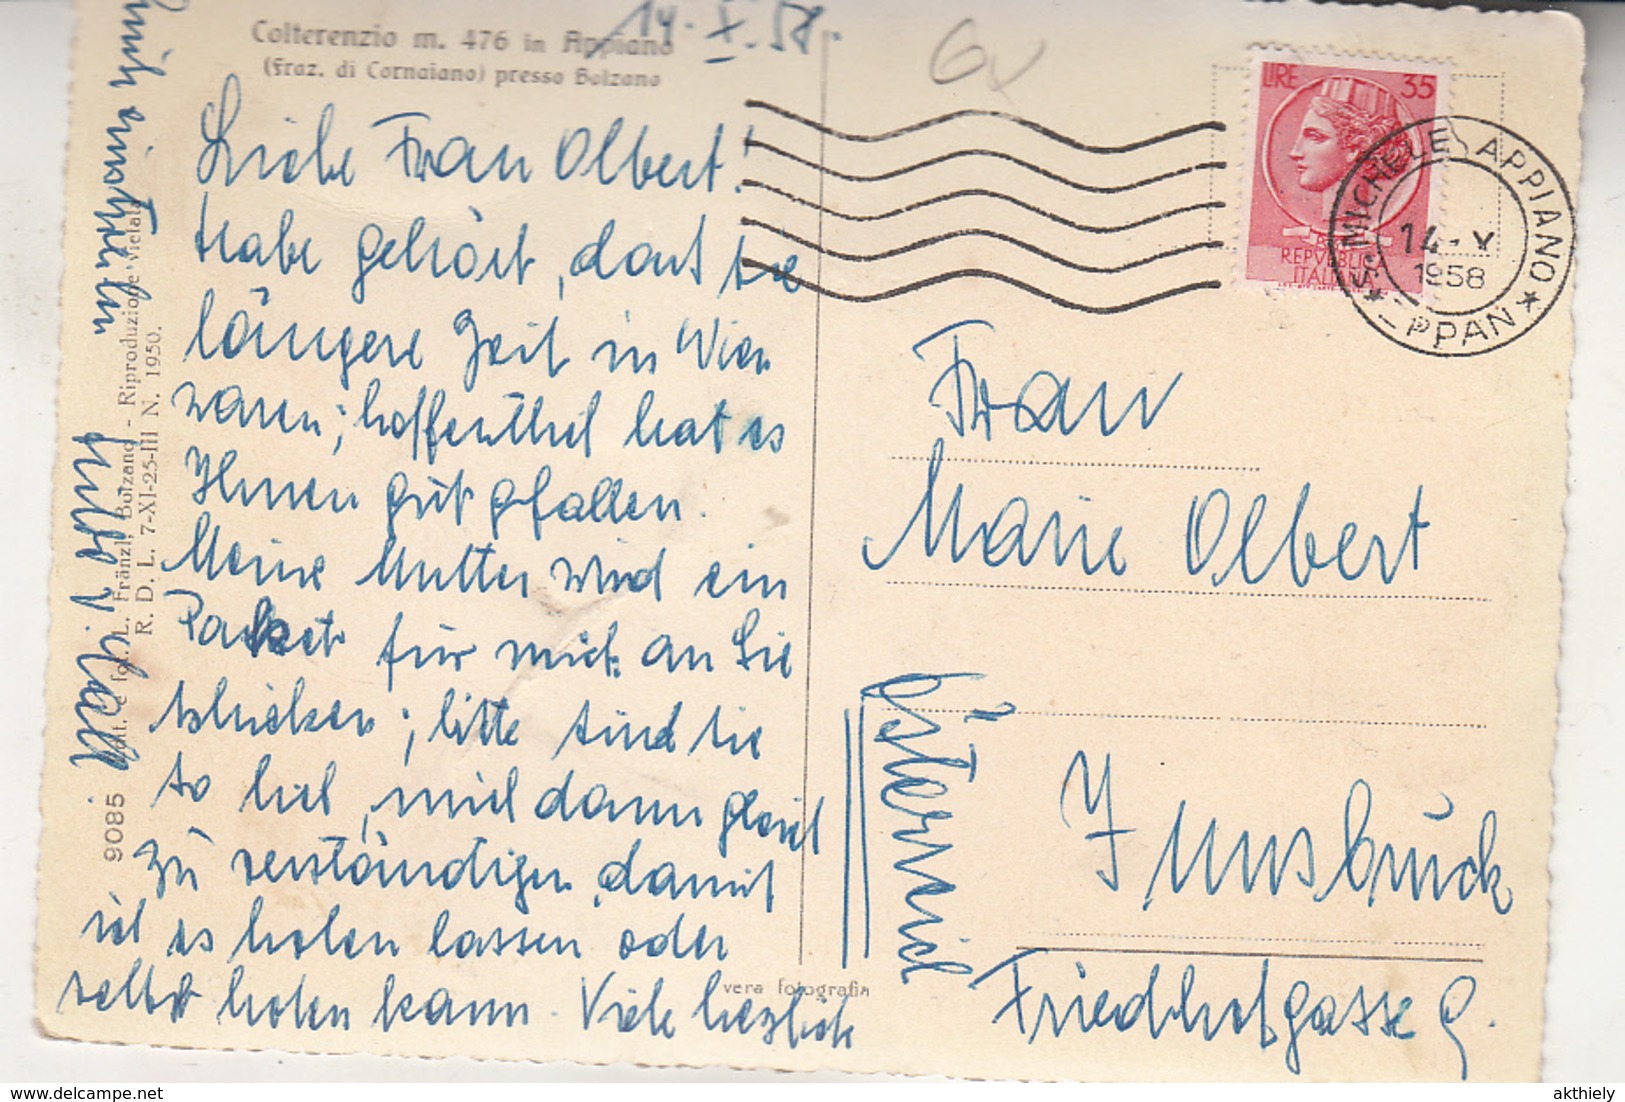 Colterenzio m. 476 in Appiano
(Fraz. di Cornaiano) presso Bolzano
14. X. 58.
Liebe Frau Olbert!
habe gehört, dass sie
längere Zeit in Wien
waren; hoffentlich hat es
Ihnen gut gefallen.
Meine Mutter wird ein
Packet für mich an Sie
schicken; bitte sind sie
so lieb, mich dann gleich
zu verständigen, damit
ich es holen lassen oder
selbst holen kann. Viele herzliche
9085
L. Fränzl, Bolzano - Riproduzione Vietata
R. D. L. 7-XI-25-III N. 1950.
vera fotografia
LIRE 35
REPVBBLICA
ITALIANA
S. MICHELE APPIANO
14 - X
1958
EPPAN
Frau
Marie Olbert
Innsbruck
Friedhofgasse 9.
Österreich